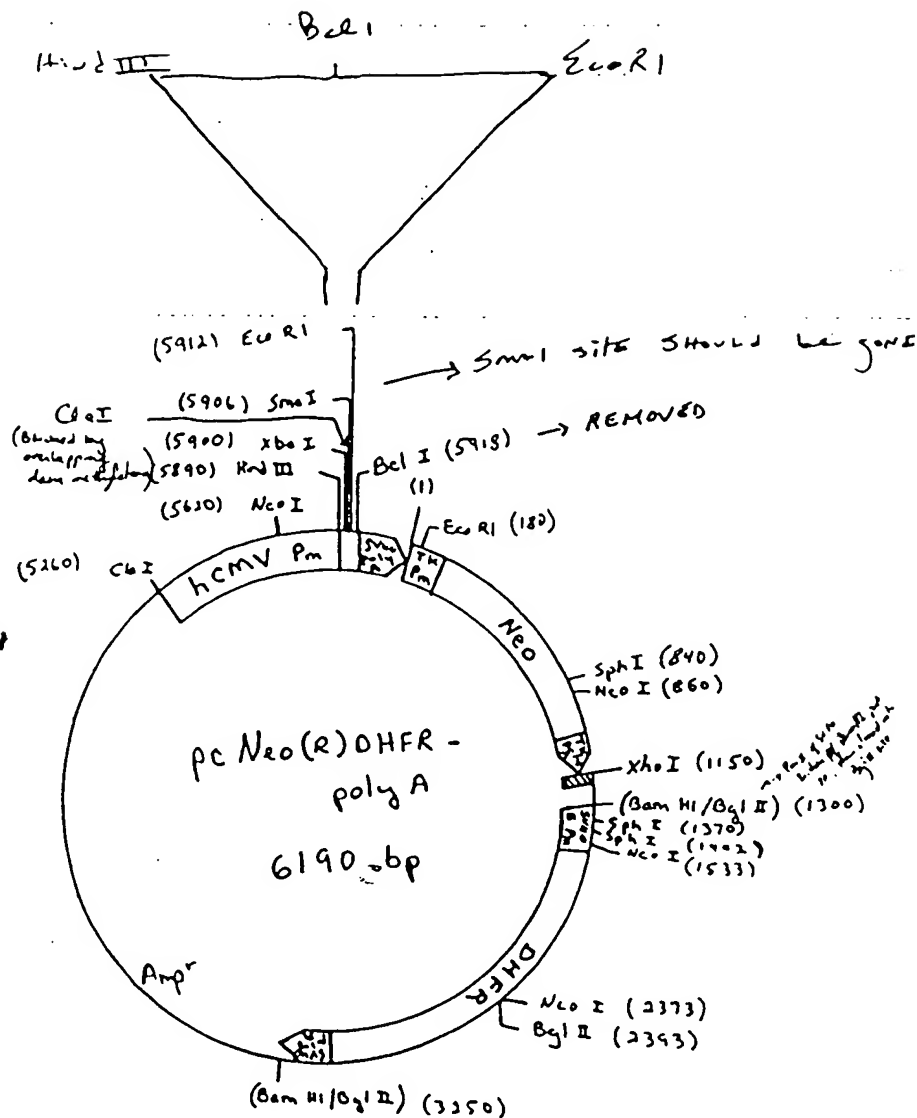 Bcl 1
Hind III
EcoR1
(5912) EcoR1
SmaI site SHOULD be gonE
(5906) SmaI
ClaI
(Blocked by overlapping dam methylation)
(5900) XbaI
REMOVED
(5890) Hind III
Bcl I (5918)
(1)
(5630) NcoI
EcoR1 (180)
(5260) ClaI
hCMV Pm
SV40 poly A
TK Pm
Neo
Sph I (840)
Nco I (860)
pc Neo(R) DHFR -
poly A
6190 bp
XhoI (1150)
(Bam H1/Bgl II) (1300)
Sph I (1370)
Sph I (1442)
Nco I (1533)
SV40 E Pm
DHFR
Ampr
Nco I (2373)
Bgl II (2393)
(Bam H1/Bgl II) (3250)